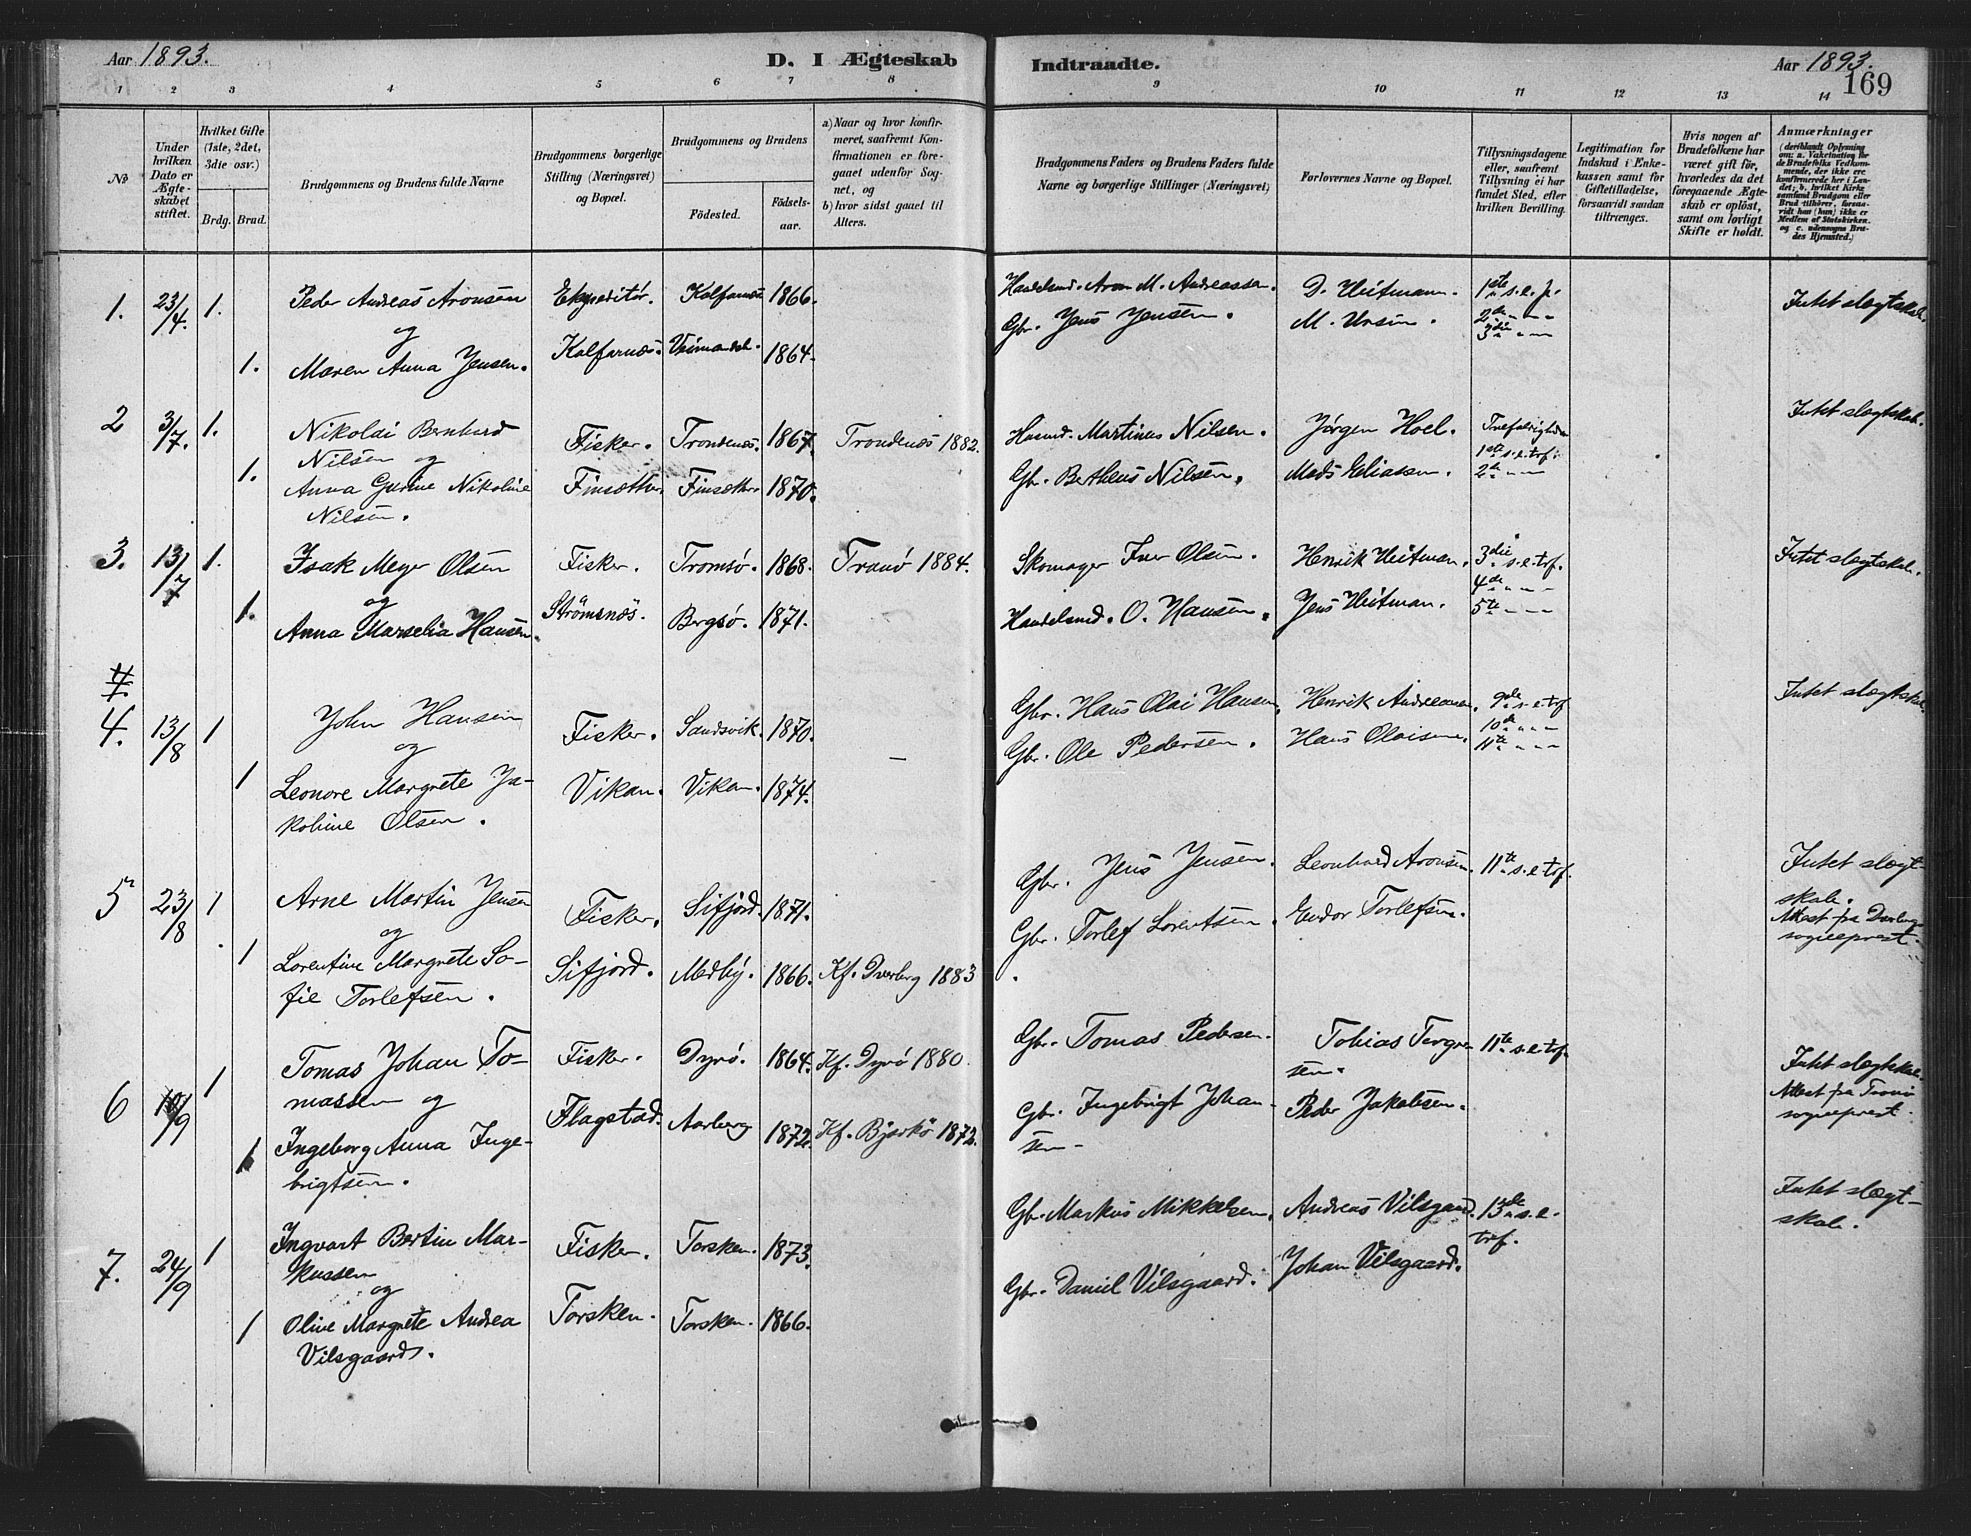 Aar 1893.
D. I Ægteskab
Indtraadte.
Aar 1893.
169
1 2 3 4 5 6 7 8 9 10 11 12 13 14
No
Under hvilken Dato er Ægteskabet stiftet.
Hvilket Gifte (1ste, 2det, 3die osv.)
Brdg. Brud.
Brudgommens og Brudens fulde Navne
Brudgommens borgerlige Stilling (Næringsvei) og Bopæl.
Brudgommens og Brudens
Fødested.
Fødselsaar.
a) Naar og hvor konfirmeret, saafremt Konfirmationen er foregaaet udenfor Sognet, og
b) hvor sidst gaaet til Alters.
Brudgommens Faders og Brudens Faders fulde Navne og borgerlige Stillinger (Næringsvei)
Forlovernes Navne og Bopæl.
Tillysningsdagene eller, saafremt Tillysning ei har fundet Sted, efter hvilken Bevilling.
Legitimation for Indskud i Enkekassen samt for Giftetilladelse, forsaavidt saadan tiltrænges.
Hvis nogen af Brudefolkene har været gift før, hvorledes da det foregaaende Ægteskab er opløst, samt om lovligt Skifte er holdt.
Anmærkninger
(deriblandt Oplysning om: a. Vaksination for de Brudefolks Vedkommende, der ikke ere konfirmerede her i Landet; b. hvilket Kirkesamfund Brudgom eller Brud tilhører, forsaavidt han (hun) ikke er Medlem af Statskirken, og c. udensogns Brudes Hjemsted.)
1. 23/4. 1. Peder Andreas Aronsen Ekspeditør. Kalfarnæs 1866. Handelsmd. Aron M. Andreassen. D. Heitmann. 1ste s. e. p. Intet slægtskab.
og Gbr. Jens Jensen. M. Ursin. 2den " " "
3die " " "
1. Maren Anna Jensen. Kalfarnæs. 1864.
2 3/7. 1. Nikolai Bernhard Fisker. Trondenæs. 1867. Trondenæs 1882. Husmd. Martinus Nilsen. Jørgen Hoel. Trefoldigheden Intet slægtskab.
Nilsen og 1ste s. e. tref.
1. Anna Gurine Nikoline Finsæther Finsæther 1870. Gbr. Bertheus Nilsen. Mads Eliassen. 2den " "
Nilsen.
3. 13/7 1. Isak Meyer Olsen Fisker. Tromsø. 1868. Tranø 1884. Skomager Iver Olsen. Henrik Heitman. 3die s. e. tref. Intet slægtskab.
og 4de " " "
1. Anna Marselia Hansen. Strömsnæs. Bergsø. 1871. Handelsmd. O. Hansen. Jens Heitman. 5te " " "
4. 13/8 1 John Hansen Fisker. Sandsvik. 1870. Gbr. Hans Olai Hansen. Henrik Andreassen. 9de s. e. tref Intet slægtskab.
og Gbr. Ole Pedersen. Hans Olaisen. 10de " " "
11te " " "
1 Leonore Margrete Ja- Vikan. Vikan. 1874. —
kobine Olsen.
5 23/8 1 Arne Martin Jensen Fisker. Sifjord. 1871. Gbr. Jens Jensen. Leonhard Aronsen. 11te s. e. tref. Intet slægt-
skab.
og Gbr. Torlef Lorentsen. Endor Torlefsen. Attest fra Dverberg
sogneprest.
1 Lorentine Margrete So- Sifjord. Medby. 1866. Kf. Dverberg 1883
fie Torlefsen.
6 10/9 1 Tomas Johan To- Fisker. Dyrø. 1864. Kf. Dyrø 1880. Gbr. Tomas Pedersen. Tobias Torger- 11te s. e. tref. Intet slægtskab.
massen og sen. Attest fra Tranø
sogneprest.
1 Ingeborg Anna Inge- Flagstad. Aarberg 1872. Kf. Bjarkø 1872. Gbr. Ingebrigt Johan- Peder Jakobsen.
brigtsen. sen
7. 24/9 1 Ingvart Bertin Mar- Fisker. Torsken. 1873. Gbr. Markus Mikkelsen. Andreas Vilsgaard. 13de s. e. Intet slægt-
kussen tref. skab.
og
1 Olive Margrete Andrea Torsken. Torsken. 1866. Gbr. Daniel Vilsgaard. Johan Vilsgaard.
Vilsgaard.